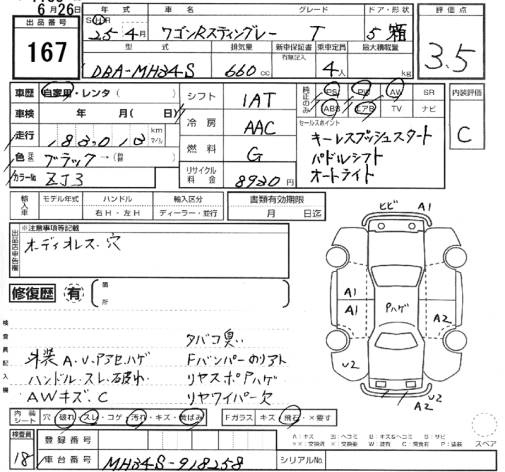 6月26日
出品番号
167
年式 車名 グレード ドア・形状
25年4月 ワゴンRスティングレー T 5 箱
型式 排気量 新車保証書 乗車定員 最大積載量
有無記入
DBA-MH34S 660cc 4人 kg
評価点
3.5
車歴 自家用・レンタ(
車検 年 月( 日)
走行 km マイル
色 ブラック →(
カラーNo. ZJ3
シフト 1AT
冷房 AAC
燃料 G
リサイクル料金 8920円
純正のみ PS PW AW SR
ABS エアB TV ナビ
セールスポイント
キーレスプッシュスタート
パドルシフト
オートライト
内装評価
C
輸入車 モデル年式 ハンドル 輸入区分
右H・左H ディーラー・並行
書類有効期限
月 日迄
出品店申告欄
※注意事項等記載
オーディオレス・穴
修復歴 有 箇所
検査員記入欄
タバコ臭い
外装A.U.Pアセハゲ
ハンドル・スレ・破れ
AWキズ、C
Fバンパーのリアト
リヤスポPハゲ
リヤワイパー欠
ヒビ A1
A1
A1
Pハゲ
A2
U2
U2
A2
内装シート 穴 破れ・スレ・コゲ 汚れ・キズ・黄ばみ
Fガラス キズ 飛石・×要す
検査員 18
登録番号
車台番号 MH34S-918258
シリアルNo.
スペア